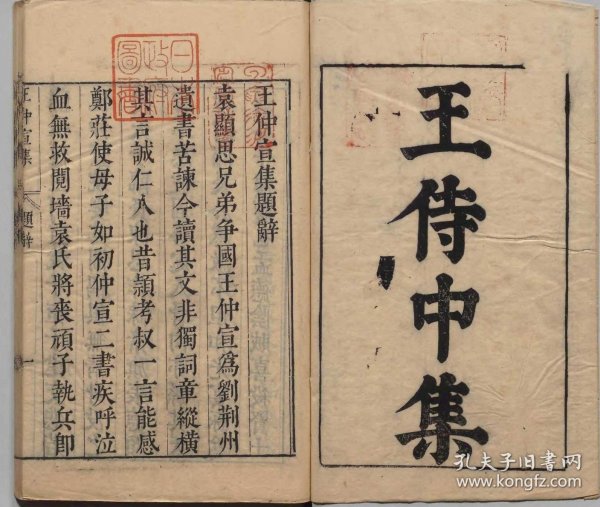 王侍中集
王仲宣集題辭
袁顯思兄弟爭國王仲宣為劉荊州
遺書苦諫今讀其文非獨詞章縱橫
其言誠仁人也昔頴考叔一言能感
鄭莊使母子如初仲宣二書疾呼泣
血無救鬩墻袁氏將喪頑子執兵卽
王仲宣集
題辭
一
日本
政府
圖書
孔夫子旧书网
www.kongfz.com